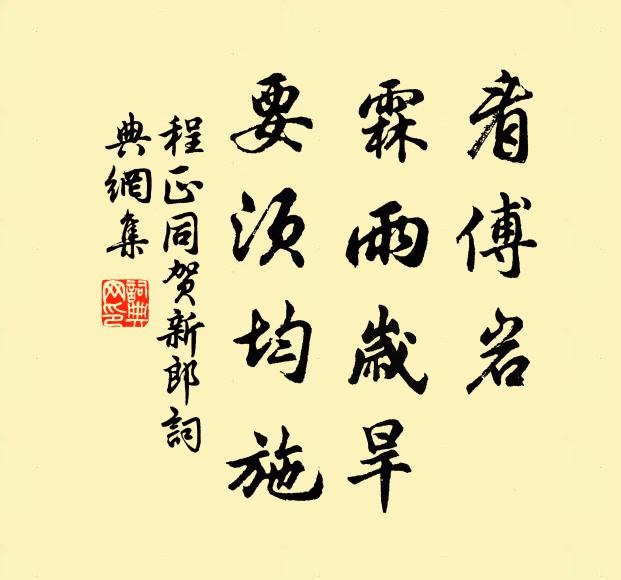 看傅岩
霖雨歲旱
要須均施
程正同賀新郎詞
典網集
詞典
网印